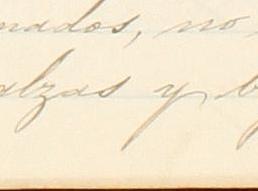 nados, no
alzas y b